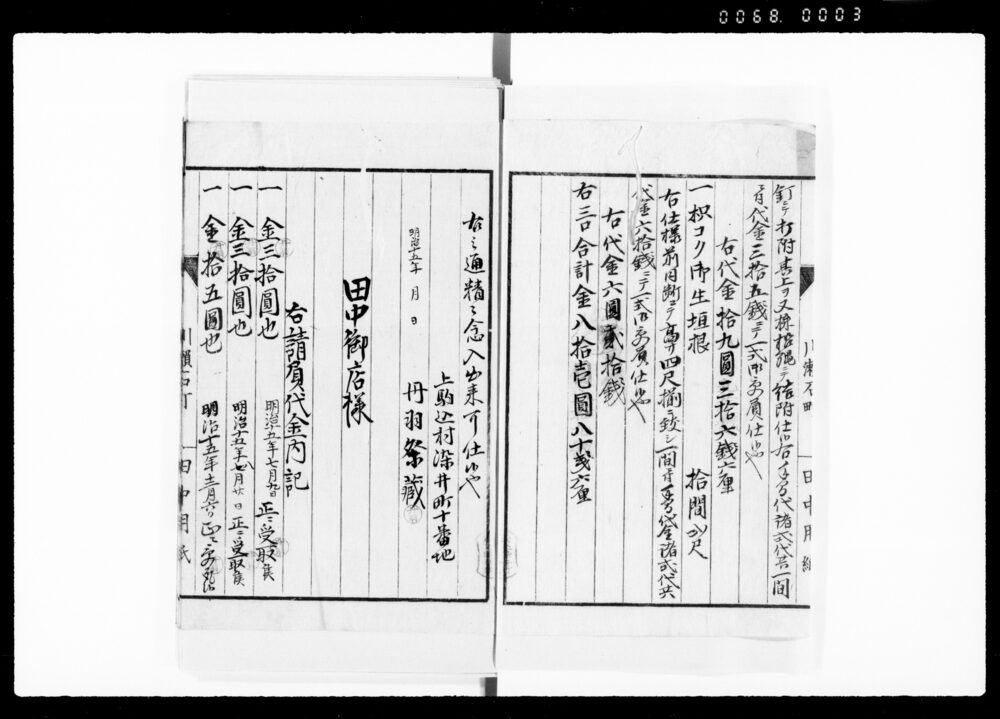 0068. 0003
釘ニテ打附其上ヲ又棕梠縄ニテ結附仕候手間代諸式代共一間
ニ付代金三拾五銭ニテ一式御受負仕候也
右代金拾九圓三拾六銭六厘
一枳コク御生垣根 拾間 尺
右仕様前同断ニテ高サ四尺揃ニ致シ一間ニ付手間代金諸式代共
代金六拾銭ニテ一式御受負仕候也
右代金六圓貳拾銭
右三口合計金八拾壱圓八十弐銭六厘
右之通精々念入出来可仕候也
上駒込村染井町十番地
明治十五年 月 日 丹羽 藏
田中御店様
右請負代金内記
一 金三拾圓也 明治十五年七月九日正ニ受取候
一 金三拾圓也 明治十五年 月廿日正ニ受取候
一 金拾五圓也 明治十五年 月六日正ニ
川瀬石町 田中用紙